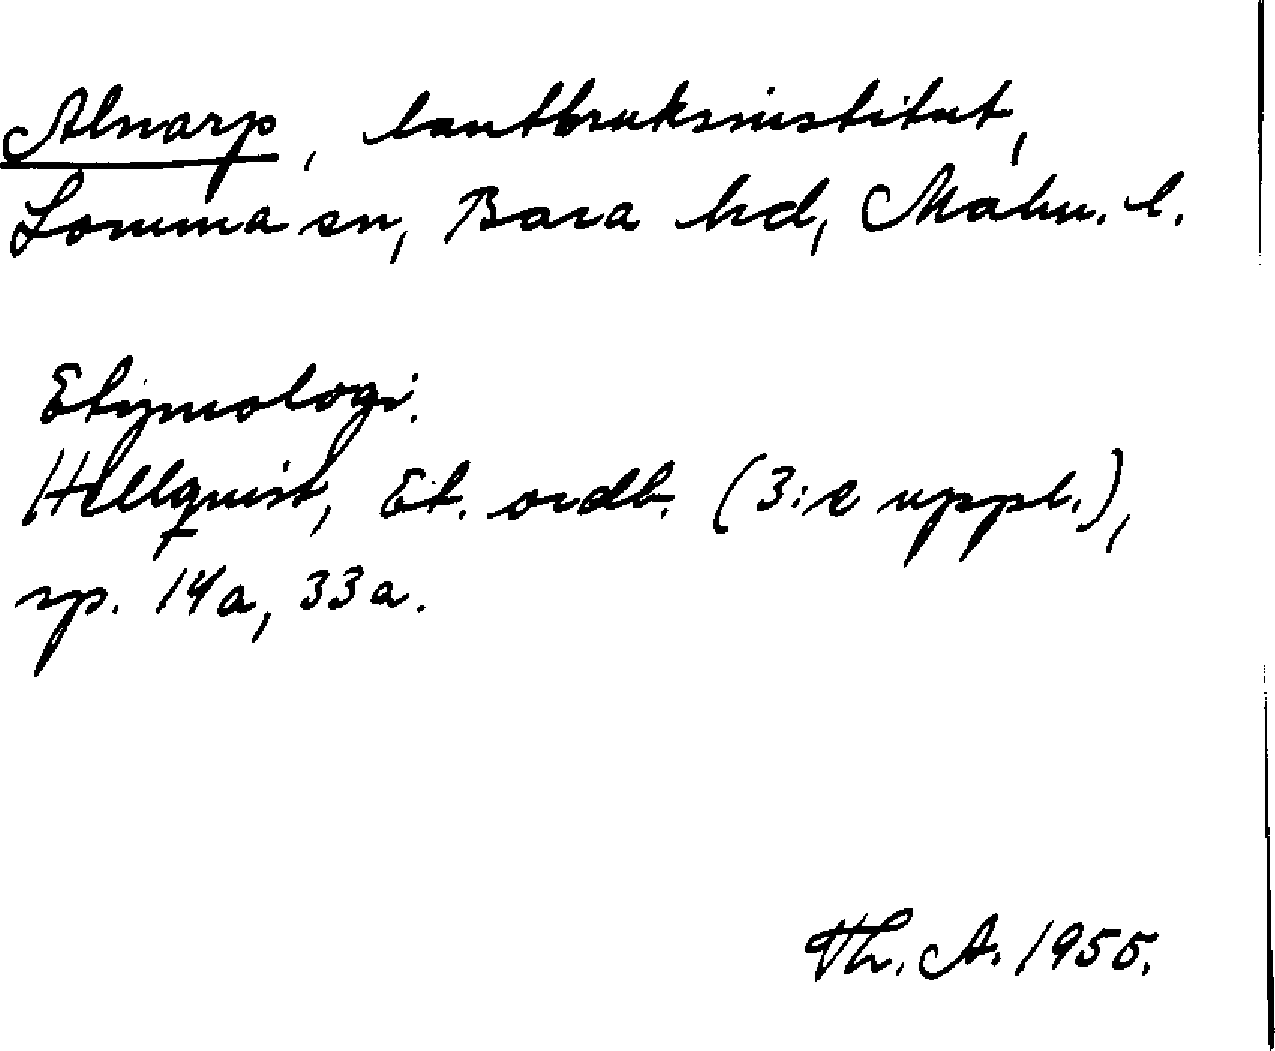 Alnarp, lantbruksinstitut,
Lomma sn, Bara hd, Malm. l.
Etymologi.
Hellquist, Et. ordb. (3:e uppl.),
sp. 14a, 33a.
Th. A. 1955.